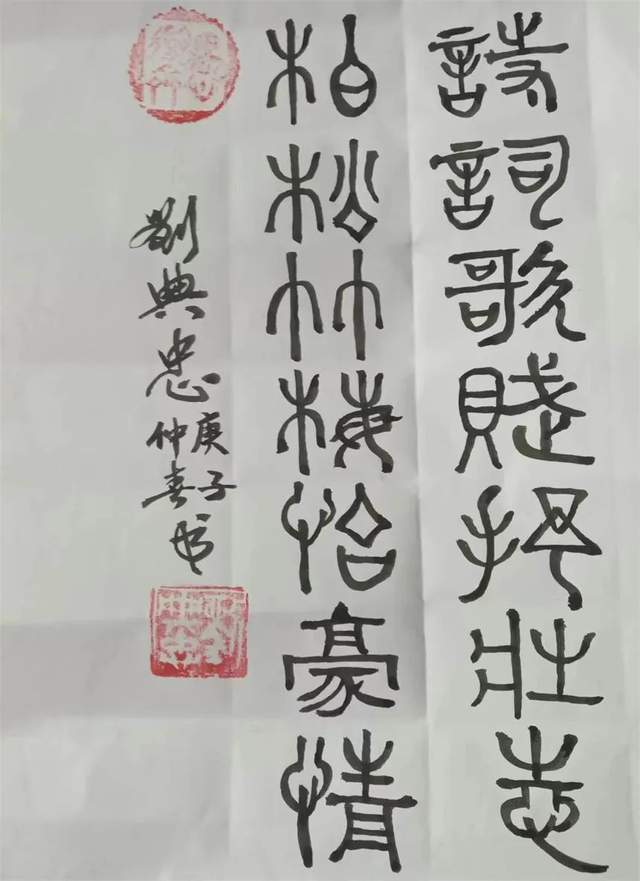 詩詞歌賦抒壯志
柏松竹梅怡豪情
劉典忠
庚子
仲春书